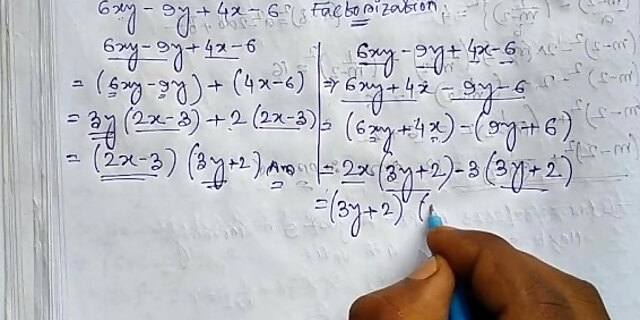 6xy-9y+4x-6 Factorization.
6xy-9y+4x-6
= (6xy-9y)+(4x-6)
= 3y(2x-3)+2(2x-3)
= (2x-3)(3y+2) Ans
6xy-9y+4x-6
⇒ 6xy+4x-9y-6
= (6xy+4x)-(9y+6)
= 2x(3y+2)-3(3y+2)
= (3y+2)(